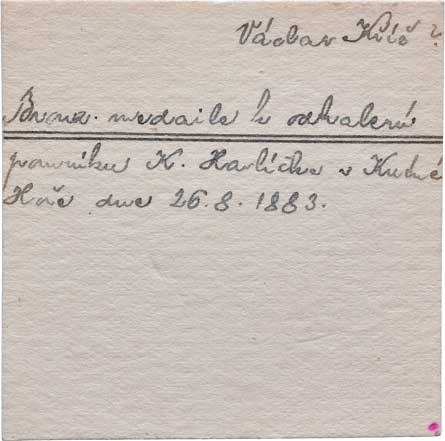 Václav Kříž ?
Bronz. medaile k odhalení
pomníku K. Havlíčka v Kutné
Hoře dne 26.8.1883.